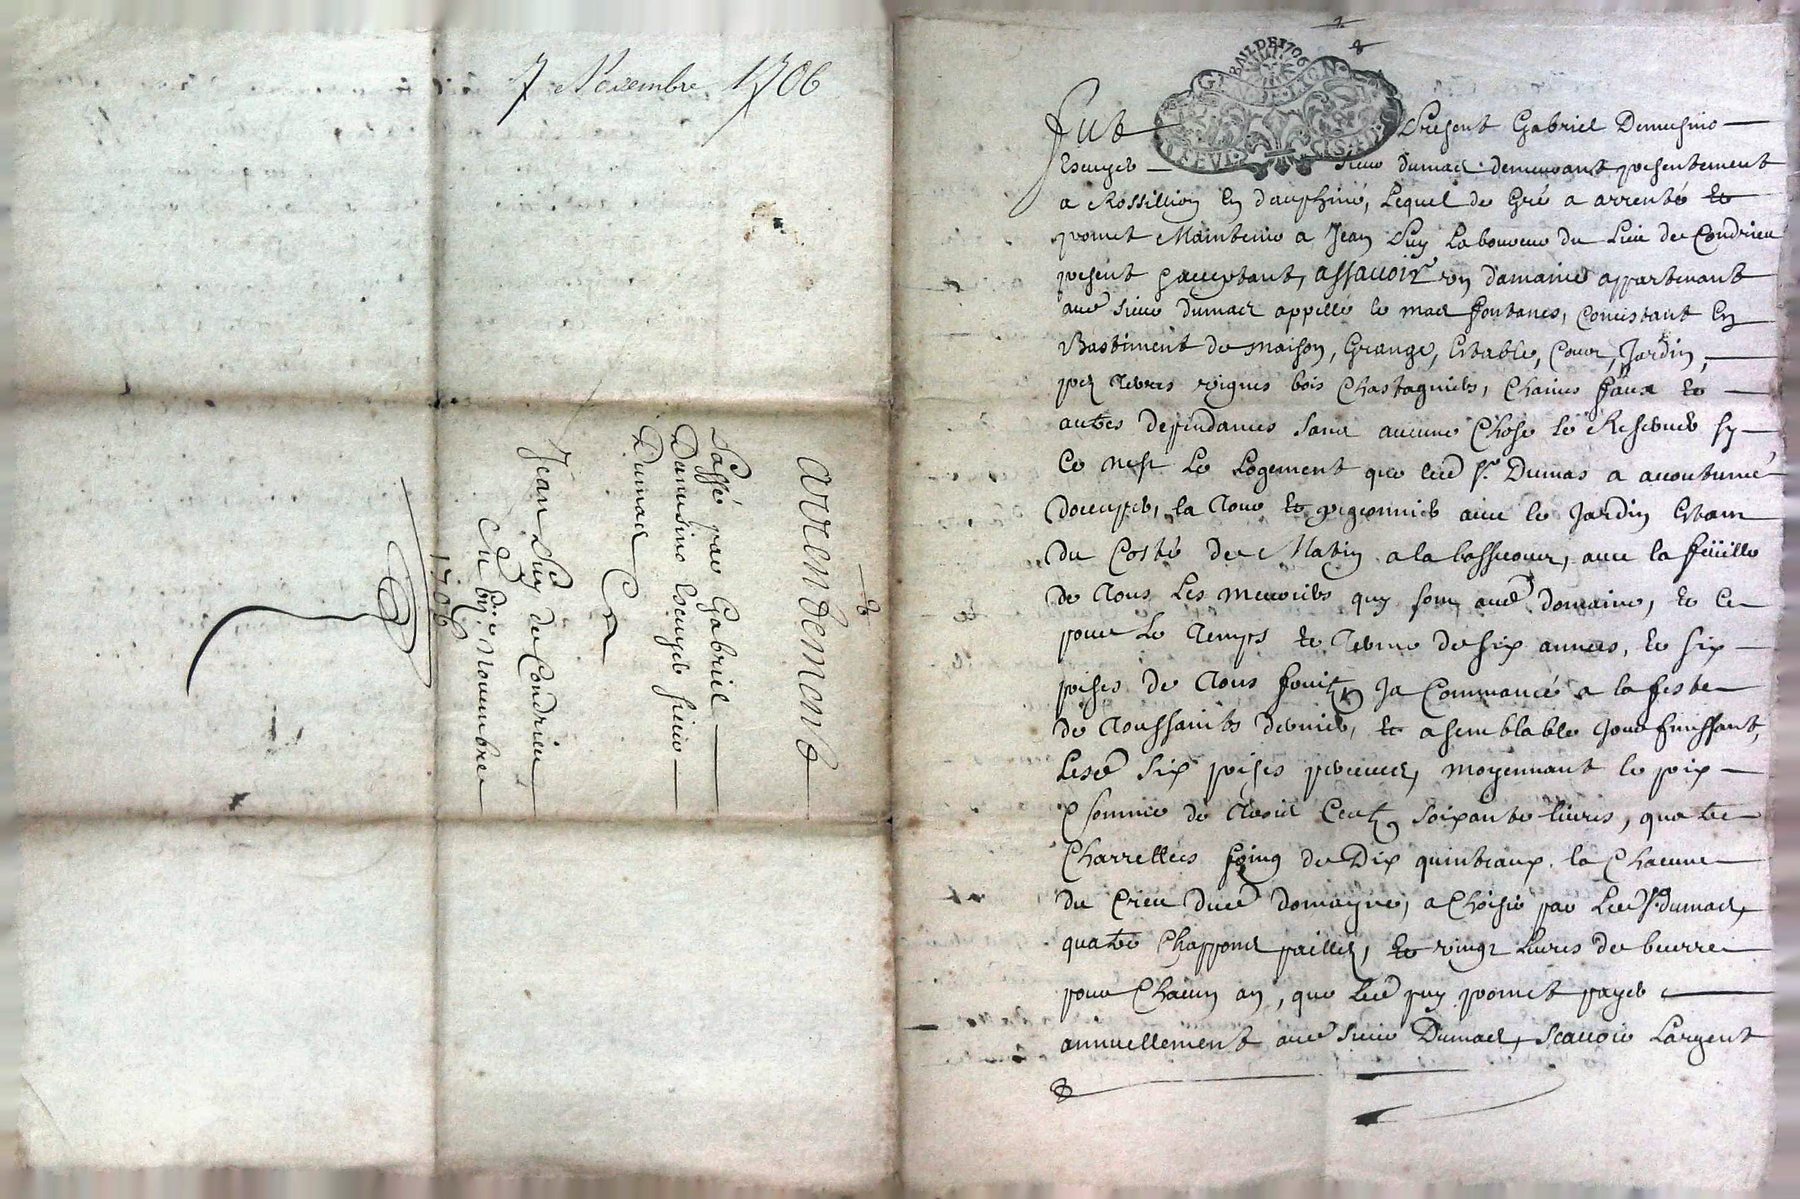 7 Novembre 1706
arrentement
Passé par Gabriel
Demusino Escuyer sieur
Dumas
Et
Jean Puy de Condrieu
Du vije novembre
1706
BAIL DE 1706
GEN. DE LION
Fut present Gabriel Demusino
Escuyer sieur dumas demeurant presentement
a Rossillion En dauphiné, Lequel de Gré a arrenté et
promet Maintenir a Jean Puy Laboureur du Lieu de Condrieu
present & acceptant, assauoir un domaine appartenant
aud sieur dumas appellé le mas fontanes, Concistant En
Bastiment de maison, Grange, Estable, Cour, Jardin,
prez Terres vignes bois Chastagniers, Chaines faux et
autres dependances sans aucune Chose se Reserver sy
Ce nest Le Logement que led sr. Dumas a acoutumé
doccuper, la Tour et pigeonnier avec le Jardin Estant
du Costé de Matin a la bassecour, avec la feüille
de Tous Les meuriers quy sont aud domaine, et Ce
pour Le Temps et Terme de six années, et six
prises de Tous fruitz Ja Commancé a la feste
de Toussaints dernier, et a semblable Jour finissant,
Lesd six prises perceues, moyennant le prix
& somme de Trois Centz soixante liures, quatre
Charrettées foing de Dix quintaux la Chacune
du Creu dud domayne, a Choisir par Led sr. dumas,
quatre Chappons paillés, et vingt Liures de beurre
pour Chacun an, que Led puy promet payer
annuellement aud sieur Dumas, scauoir Largent